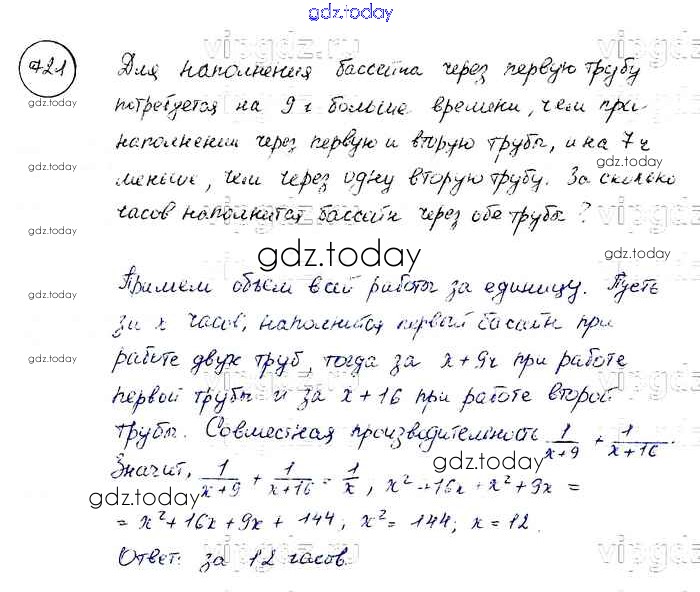 gdz.today
721 Для наполнения бассейна через первую трубу
потребуется на 9 ч больше времени, чем при
наполнении через первую и вторую трубы, и на 7 ч
меньше, чем через одну вторую трубу. За сколько
часов наполнится бассейн через обе трубы?
gdz.today
Примем объем всей работы за единицу. Пусть
за x часов, наполнится первый басайн при
работе двух труб, тогда за x+9ч при работе
первой трубы и за x+16 при работе второй
трубы. Совместная производительность 1/(x+9) + 1/(x+16).
Значит, 1/(x+9) + 1/(x+16) = 1/x, x²+16x+x²+9x =
= x²+16x+9x+144, x²=144; x=12.
Ответ: за 12 часов.
gdz.today
gdz.today
gdz.today
gdz.today
gdz.today
gdz.today
gdz.today
gdz.today
gdz.today
gdz.today
gdz.today
gdz.today